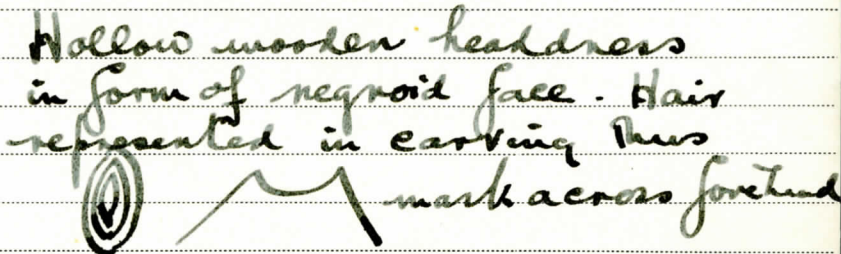 Hollow wooden headdress
in form of negroid face. Hair
represented in carving thus
mark across forehead